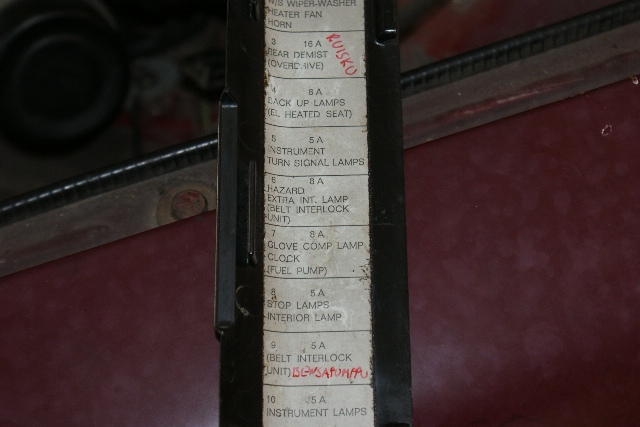 W/S WIPER-WASHER
HEATER FAN
HORN
3 16 A
REAR DEMIST
(OVERDRIVE)
RUISKU
4 8 A
BACK UP LAMPS
(EL HEATED SEAT)
5 5 A
INSTRUMENT
TURN SIGNAL LAMPS
6 8 A
HAZARD
EXTRA INT. LAMP
(BELT INTERLOCK
UNIT)
7 8 A
GLOVE COMP LAMP
CLOCK
(FUEL PUMP)
8 5 A
STOP LAMPS
INTERIOR LAMP
9 5 A
(BELT INTERLOCK
UNIT) BENSAPUMPPU
10 5 A
INSTRUMENT LAMPS